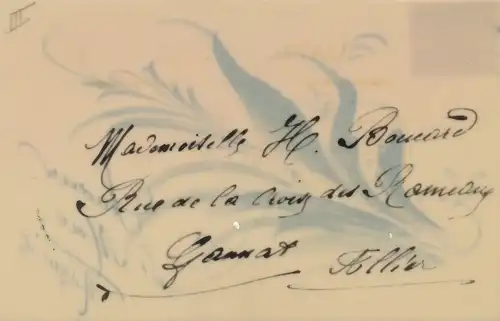 III
Mademoiselle H. Bouard
Rue de la Croix des Rameaux
Gannat Allier